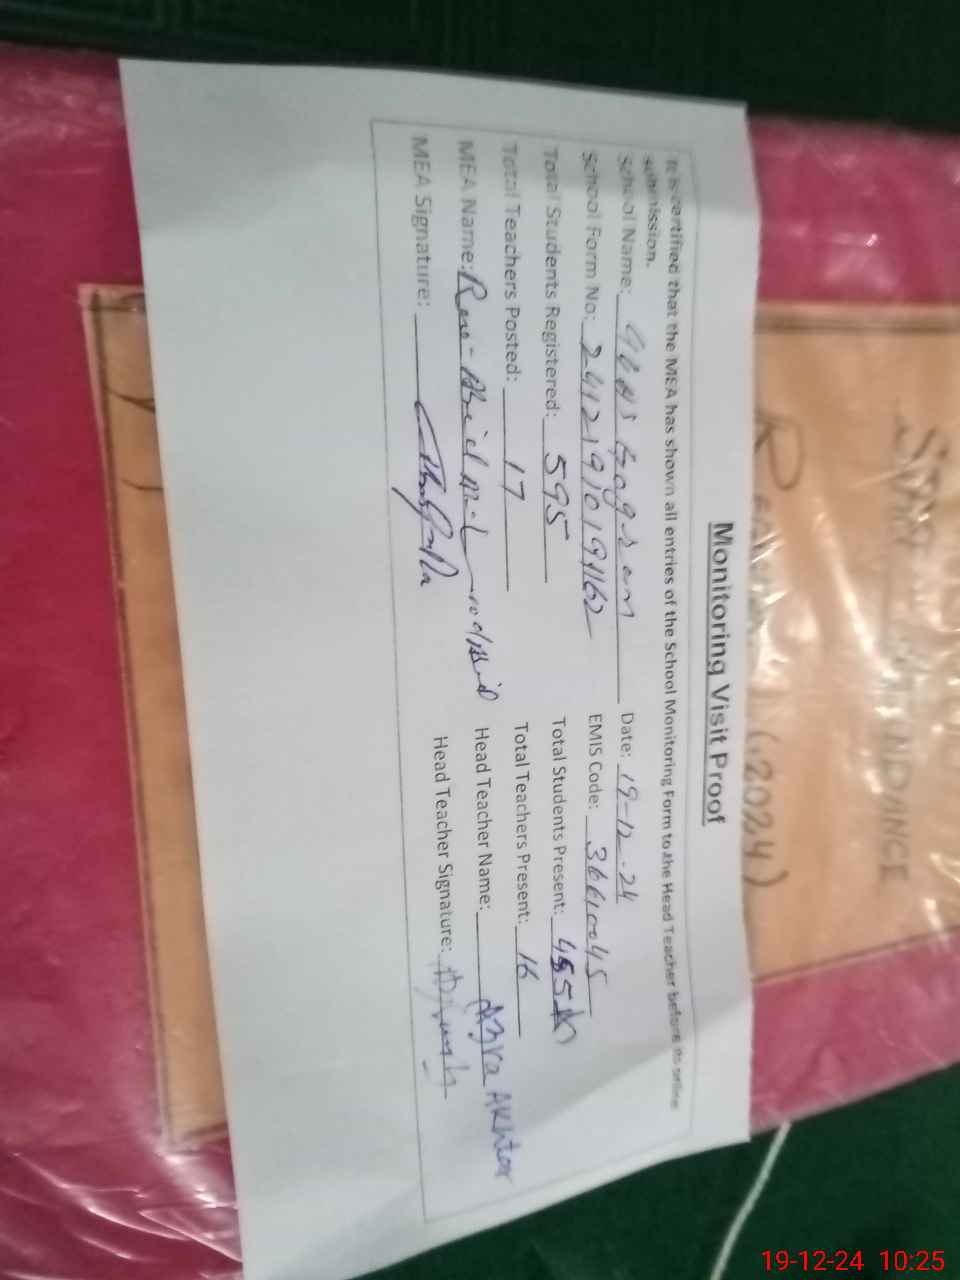 STAFF ATTENDANCE
(2024)
Monitoring Visit Proof
It is certified that the MEA has shown all entries of the School Monitoring Form to the Head Teacher before its online
submission.
School Name: Date: 19-12-24
School Form No: EMIS Code: 36610045
Total Students Registered: 595 Total Students Present: 455
Total Teachers Posted: 17 Total Teachers Present: 16
MEA Name: Head Teacher Name: Azra Akhtar
MEA Signature: Head Teacher Signature:
19-12-24 10:25